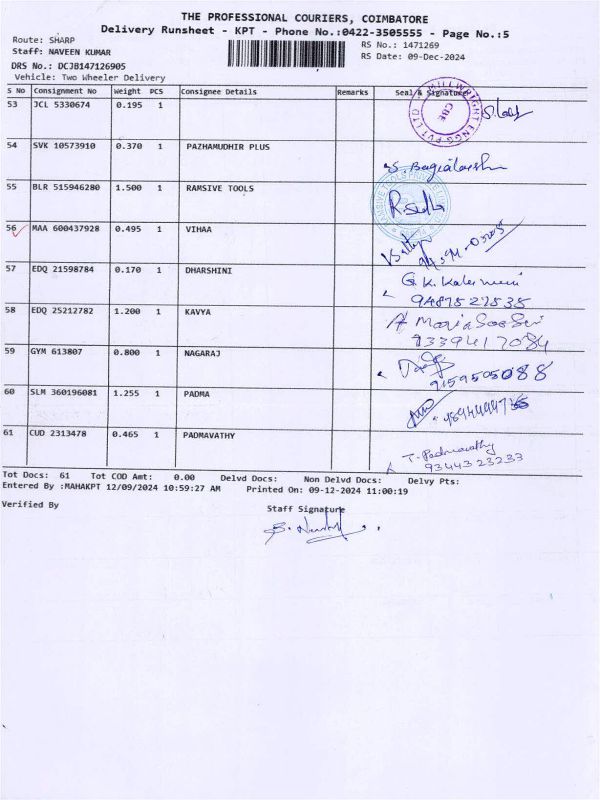 THE PROFESSIONAL COURIERS, COIMBATORE
Delivery Runsheet - KPT - Phone No.:0422-3505555 - Page No.:5
Route: SHARP
RS No.: 1471269
Staff: NAVEEN KUMAR
RS Date: 09-Dec-2024
DRS No.: DCJB147126905
Vehicle: Two Wheeler Delivery
S No Consignment No Weight PCS Consignee Details Remarks Seal & Signature
53 JCL 5330674 0.195 1
54 SVK 10573910 0.370 1 PAZHAMUDHIR PLUS
55 BLR 515946280 1.500 1 RAMSIVE TOOLS
56 MAA 600437928 0.495 1 VIHAA
57 EDQ 21598784 0.170 1 DHARSHINI
9487527535
58 EDQ 25212782 1.200 1 KAVYA
59 GYM 613807 0.800 1 NAGARAJ
9159505088
60 SLM 360196081 1.255 1 PADMA
61 CUD 2313478 0.465 1 PADMAVATHY
T. Padmavathy
93443 23233
Tot Docs: 61 Tot COD Amt: 0.00 Delvd Docs: Non Delvd Docs: Delvy Pts:
Entered By :MAHAKPT 12/09/2024 10:59:27 AM Printed On: 09-12-2024 11:00:19
Verified By
Staff Signature